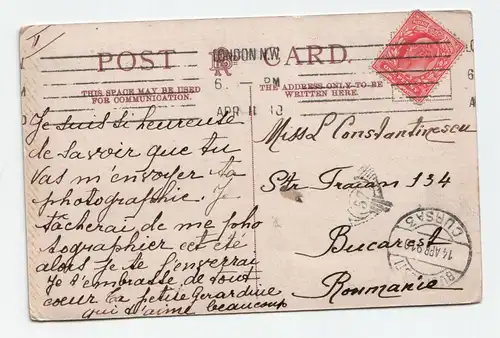 POST CARD.
LONDON N.W.
6. PM
APR 11 10
THIS SPACE MAY BE USED
FOR COMMUNICATION.
THE ADDRESS ONLY TO BE
WRITTEN HERE.
Je suis si heureuse
de savoir que tu
vas m'envoyer ta
photographie. Je
tâcherai de me pho
tographier cet été
alors je te l'enverrai
Je t'embrasse de tout
coeur la petite Gerardine
qui t'aime beaucoup
Miss L Constantinescu
Str Traian 134
Bucarest
Roumanie
CURSA 6
14 APR